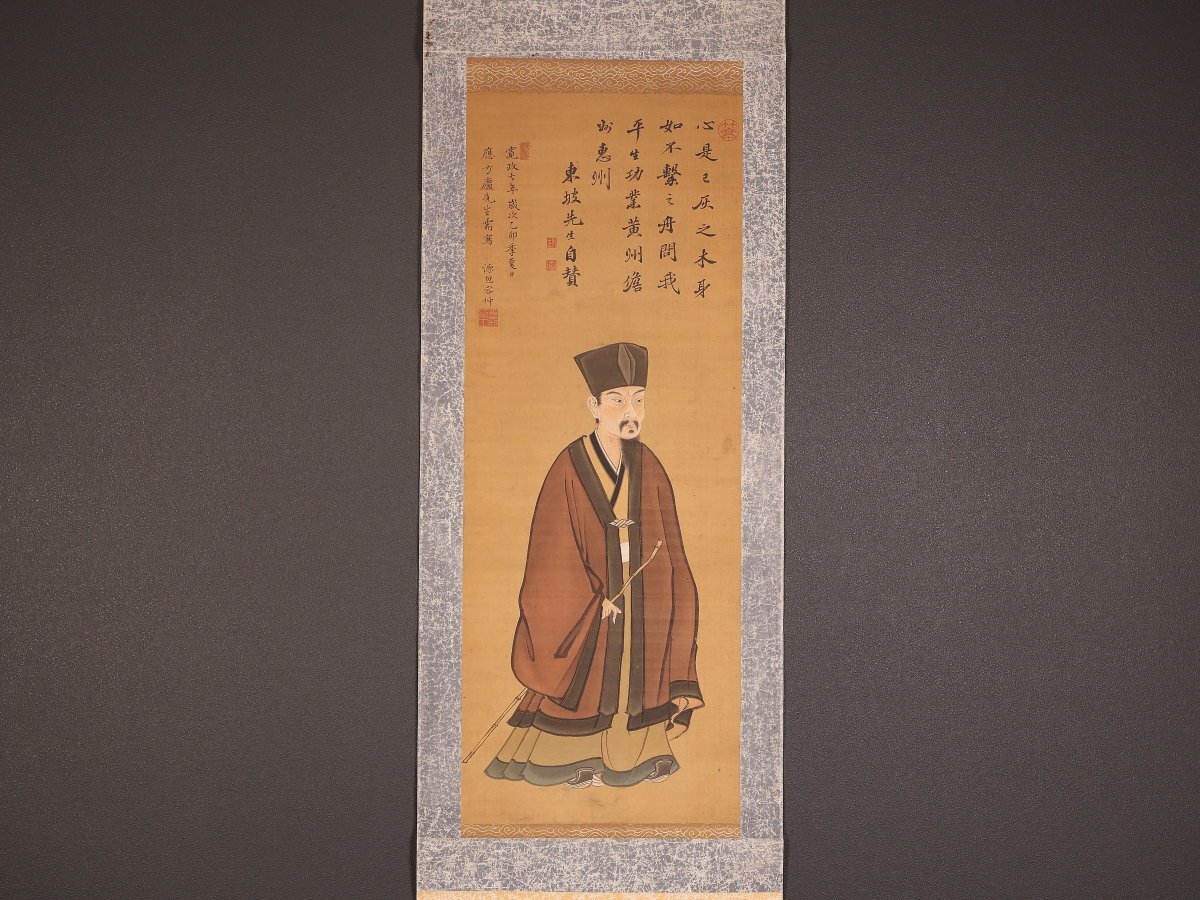 心是已灰之木身
如不繋之舟問我
平生功業黄州儋
州惠州
東坡先生自賛
寛政七年歳次乙卯季夏日
應方廬先生需寫